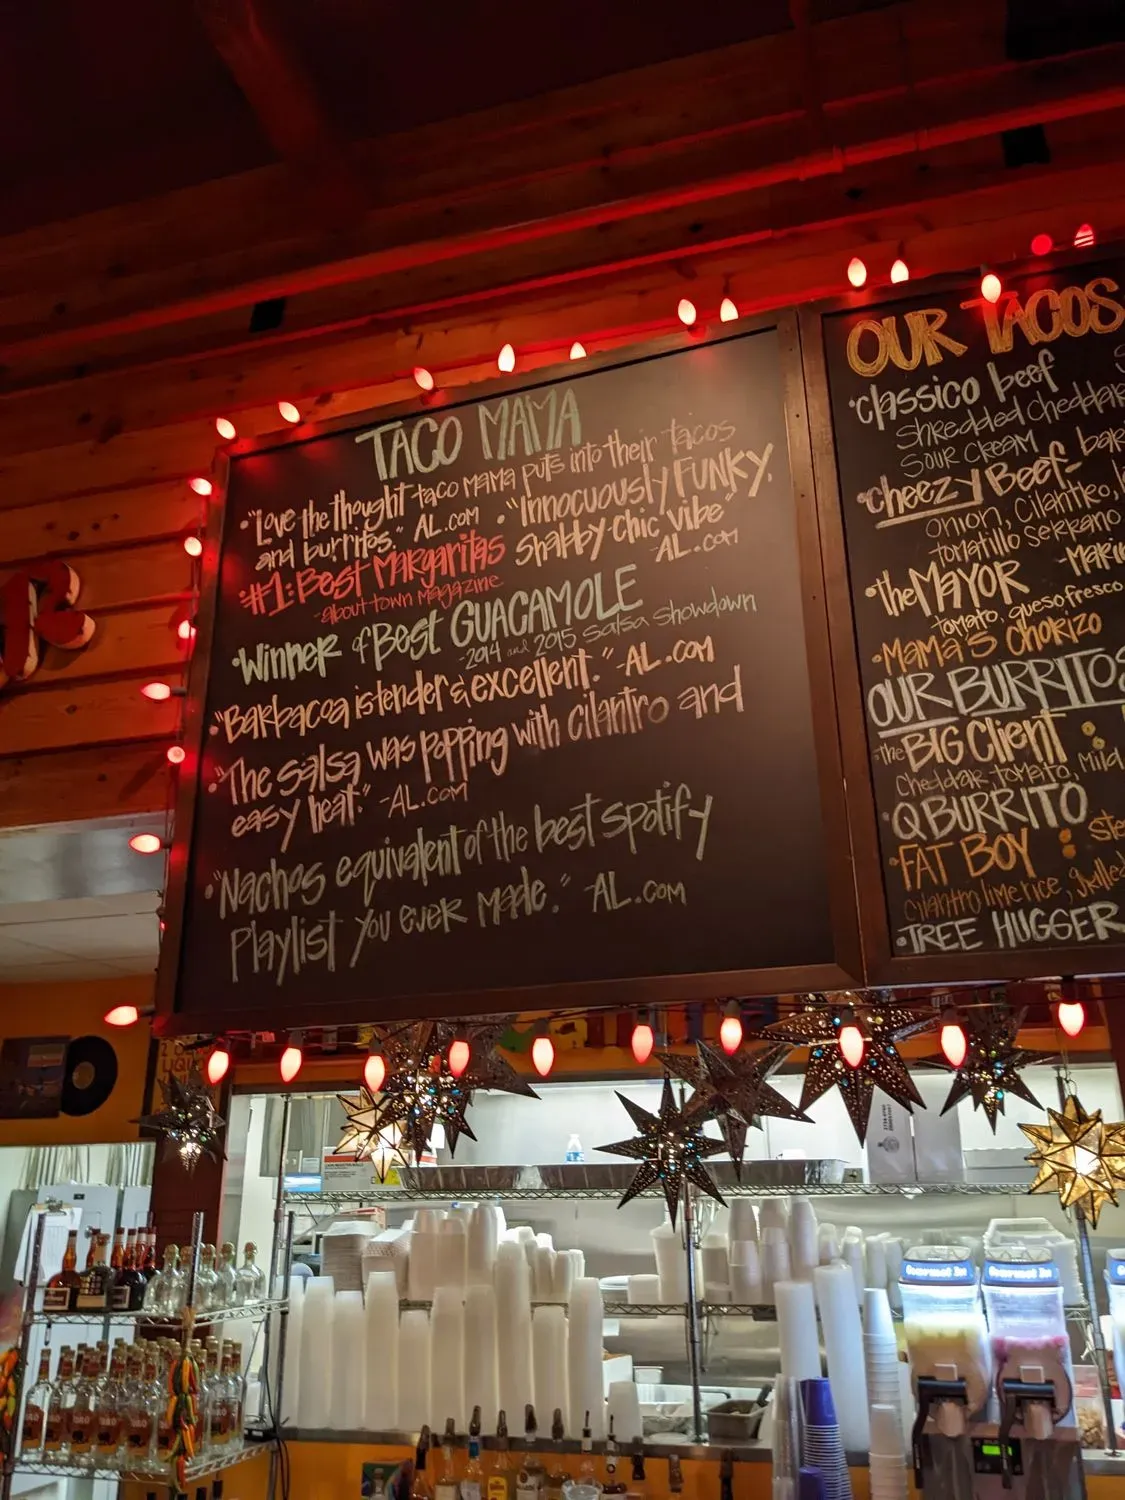 TACO MAMA
• "Love the thought taco mama puts into their tacos
and burritos." AL.com • "Innocuously FUNKY,
shabby-chic vibe"
-AL.com
• #1: Best Margaritas
-about town Magazine
• Winner of Best GUACAMOLE
-2014 and 2015 salsa showdown
• "Barbacoa is tender & excellent." -AL.com
• "The salsa was popping with cilantro and
easy heat." -AL.com
• "Nachos equivalent of the best spotify
playlist you ever made." -AL.com
OUR TACOS
• classico beef
shredded cheddar
sour cream
• cheezy Beef-
onion, cilantro,
tomatillo serrano
• the MAYOR
tomato, queso fresco
• MAMA'S chorizo
OUR BURRITOS
• The BIG Client
cheddar, tomato, mild
• Q BURRITO
• FAT BOY
cilantro lime rice, grilled
• TREE HUGGER
Gourmet Ice
Gourmet Ice